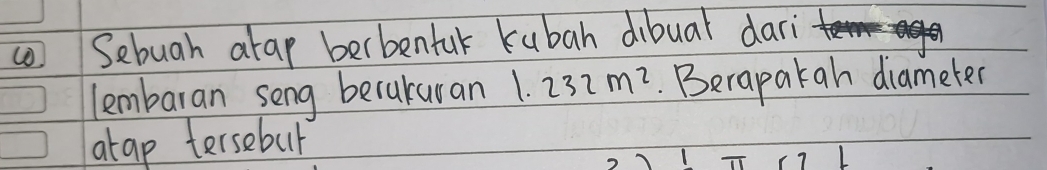 10) Sebuah atap berbentuk kubah dibuat dari
lembaran seng berukuran 1.232 m². Berapakah diameter
atap tersebut